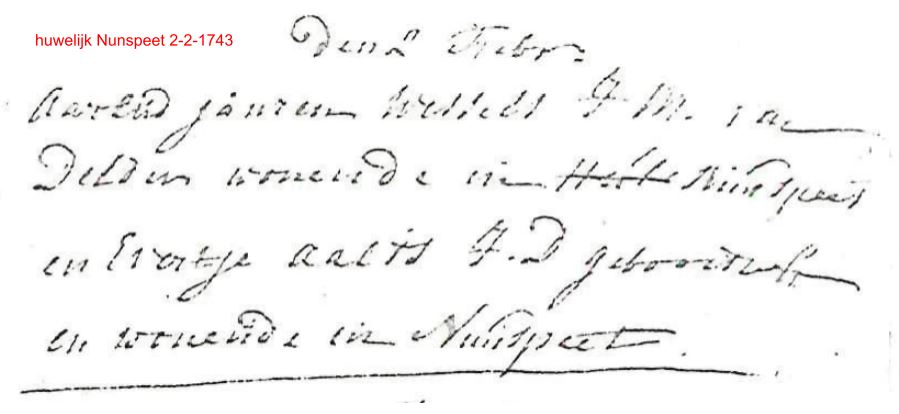 huwelijk Nunspeet 2-2-1743
Den 2 Febr.
Aarend janzen Wessels J M. van
Delden wonende in Nunspeet
en Evertje Aalts J. D geboortig
en wonende in Nunspeet.